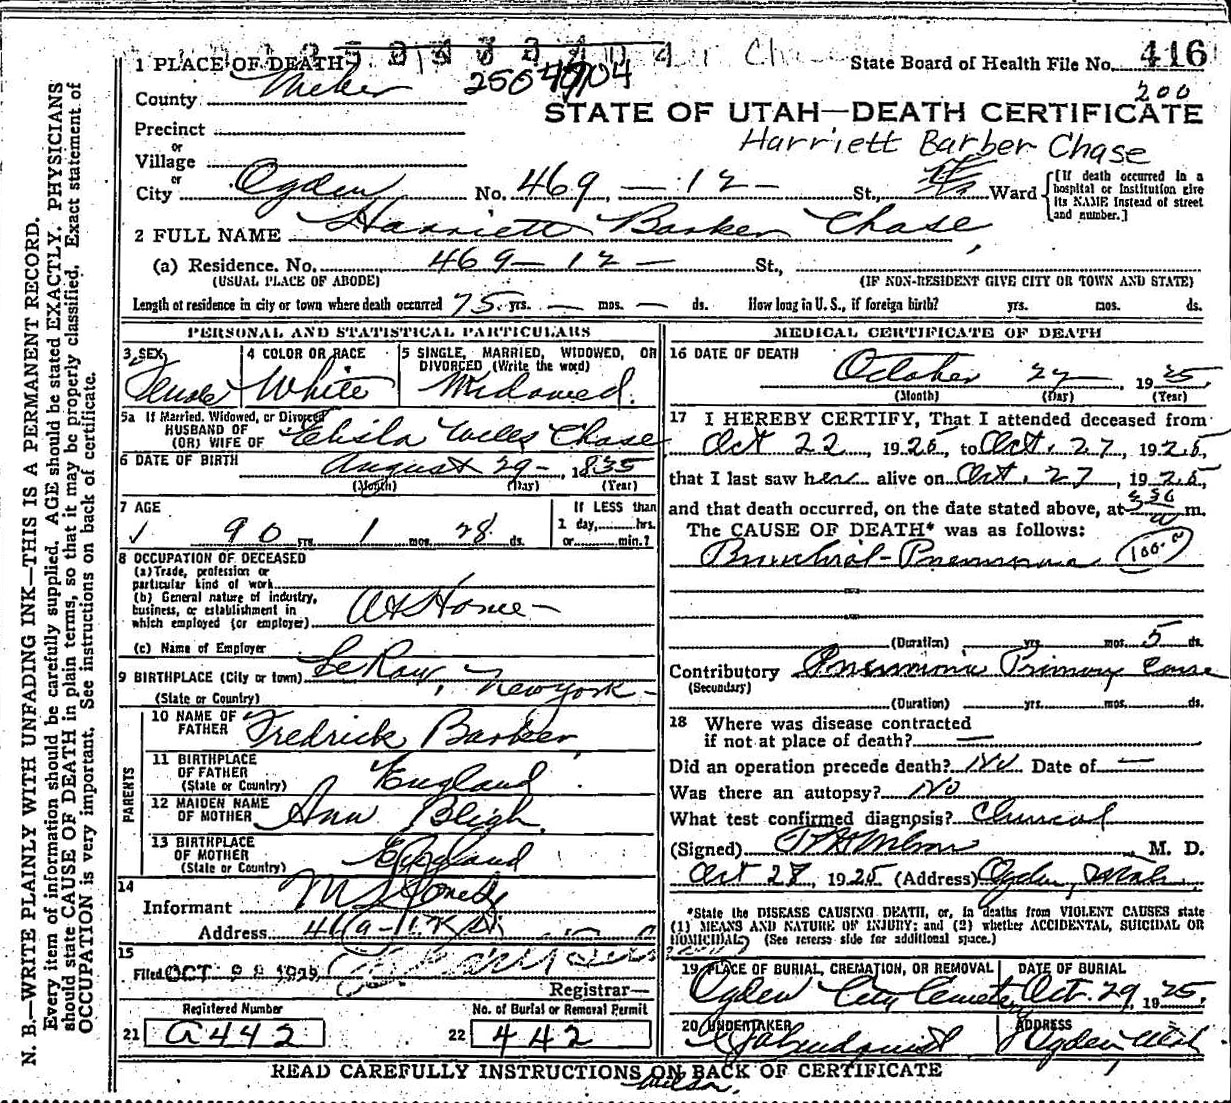 N. B.—WRITE PLAINLY WITH UNFADING INK—THIS IS A PERMANENT RECORD.
Every item of information should be carefully supplied. AGE should be stated EXACTLY. PHYSICIANS
should state CAUSE OF DEATH in plain terms, so that it may be properly classified. Exact statement of
OCCUPATION is very important. See instructions on back of certificate.
1 PLACE OF DEATH
State Board of Health File No. 416
County Weber
200
STATE OF UTAH—DEATH CERTIFICATE
Precinct
Harriett Barber Chase
or
Village
or
City Ogden No. 469 — 12 — St., Ward
[If death occurred in a
hospital or institution give
its NAME instead of street
and number.]
2 FULL NAME Harriett Barker Chase,
(a) Residence. No. 469 — 12 — St.,
(USUAL PLACE OF ABODE) (IF NON-RESIDENT GIVE CITY OR TOWN AND STATE)
Length of residence in city or town where death occurred 75 yrs. — mos. — ds. How long in U. S., if foreign birth? yrs. mos. ds.
PERSONAL AND STATISTICAL PARTICULARS
3 SEX
Female
4 COLOR OR RACE
White
5 SINGLE, MARRIED, WIDOWED, OR
DIVORCED (Write the word)
Widowed.
5a If Married, Widowed, or Divorced
HUSBAND OF
(OR) WIFE OF Elisha Welles Chase
6 DATE OF BIRTH August 29 — 1835
(Month) (Day) (Year)
7 AGE
90 yrs. 1 mos. 28 ds.
If LESS than
1 day, hrs.
or min.?
8 OCCUPATION OF DECEASED
(a) Trade, profession or
particular kind of work
(b) General nature of industry,
business, or establishment in
which employed (or employer) At Home —
(c) Name of Employer
9 BIRTHPLACE (City or town) LeRay, New York —
(State or Country)
PARENTS
10 NAME OF
FATHER Fredrick Barker
11 BIRTHPLACE
OF FATHER England
(State or Country)
12 MAIDEN NAME
OF MOTHER Ann Bligh
13 BIRTHPLACE
OF MOTHER England
(State or Country)
14
Informant
Address
15
Filed OCT 28 1925
Registrar—
Registered Number
21 a442
No. of Burial or Removal Permit
22 442
MEDICAL CERTIFICATE OF DEATH
16 DATE OF DEATH
October 27 —, 1925
(Month) (Day) (Year)
17 I HEREBY CERTIFY, That I attended deceased from
Oct 22, 1925, to Oct. 27, 1925,
that I last saw her alive on Oct. 27, 1925,
and that death occurred, on the date stated above, at m.
The CAUSE OF DEATH* was as follows:
Bronchial-Pneumonia
(Duration) yrs. mos. 5 ds.
Contributory Pneumonia Primary Cause
(Secondary)
(Duration) yrs. mos. ds.
18 Where was disease contracted
if not at place of death? —
Did an operation precede death? No Date of —
Was there an autopsy? No
What test confirmed diagnosis? Clinical
(Signed) M. D.
Oct 28, 1925 (Address) Ogden, Utah
*State the DISEASE CAUSING DEATH, or, in deaths from VIOLENT CAUSES state
(1) MEANS AND NATURE OF INJURY; and (2) whether ACCIDENTAL, SUICIDAL OR
HOMICIDAL. (See reverse side for additional space.)
19 PLACE OF BURIAL, CREMATION, OR REMOVAL
Ogden City Cemetery
DATE OF BURIAL
Oct. 29, 1925.
20 UNDERTAKER
ADDRESS
Ogden Utah
READ CAREFULLY INSTRUCTIONS ON BACK OF CERTIFICATE
Wilson.